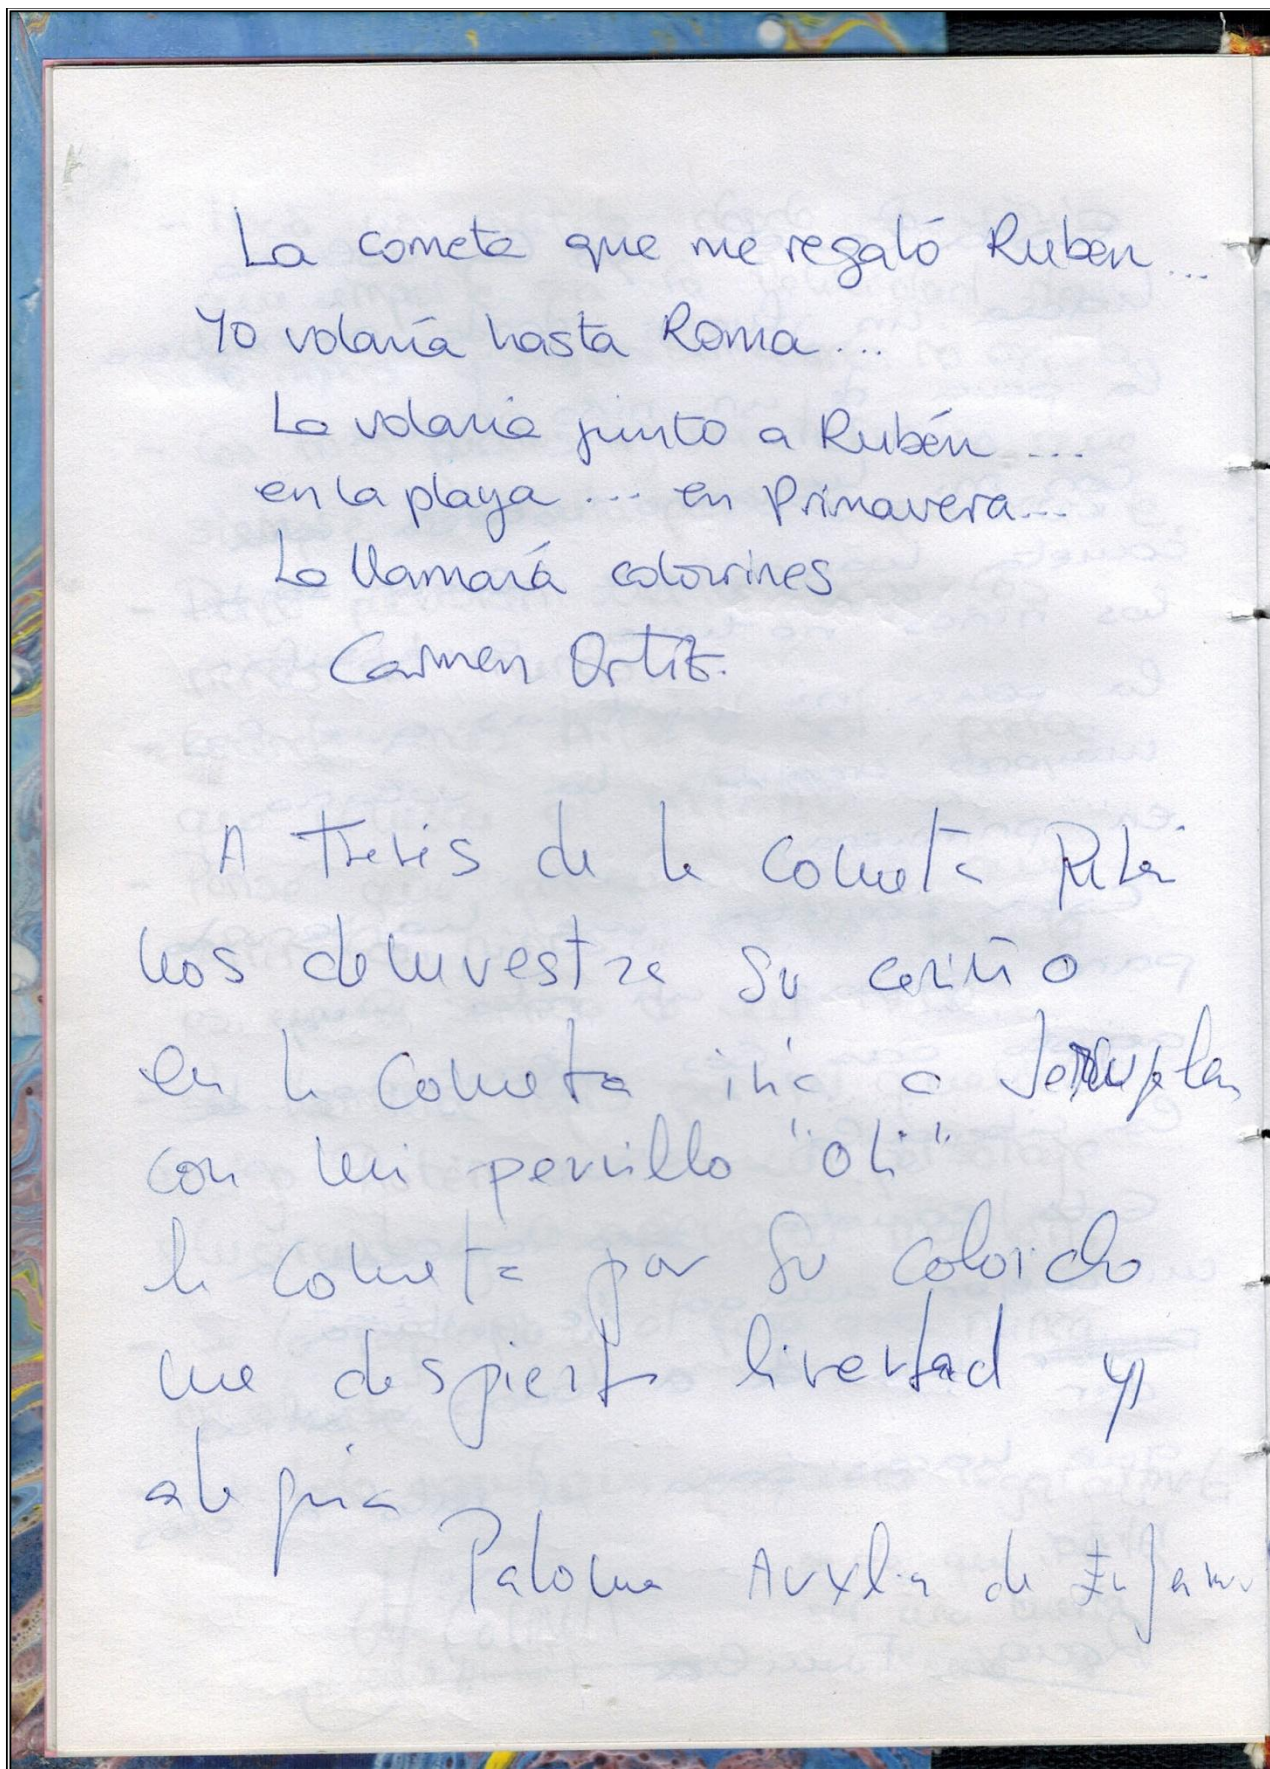 La cometa que me regaló Ruben...
Yo volaría hasta Roma...
La volaria junto a Rubén...
en la playa... en Primavera...
La llamará colourines
Carmen Ortiz.
A Través de la cometa
nos demuestra su cariño
en la cometa iría a
con mi perrillo "oli"
la cometa por su colorido
me despierta livertad y
alegria
Paloma de